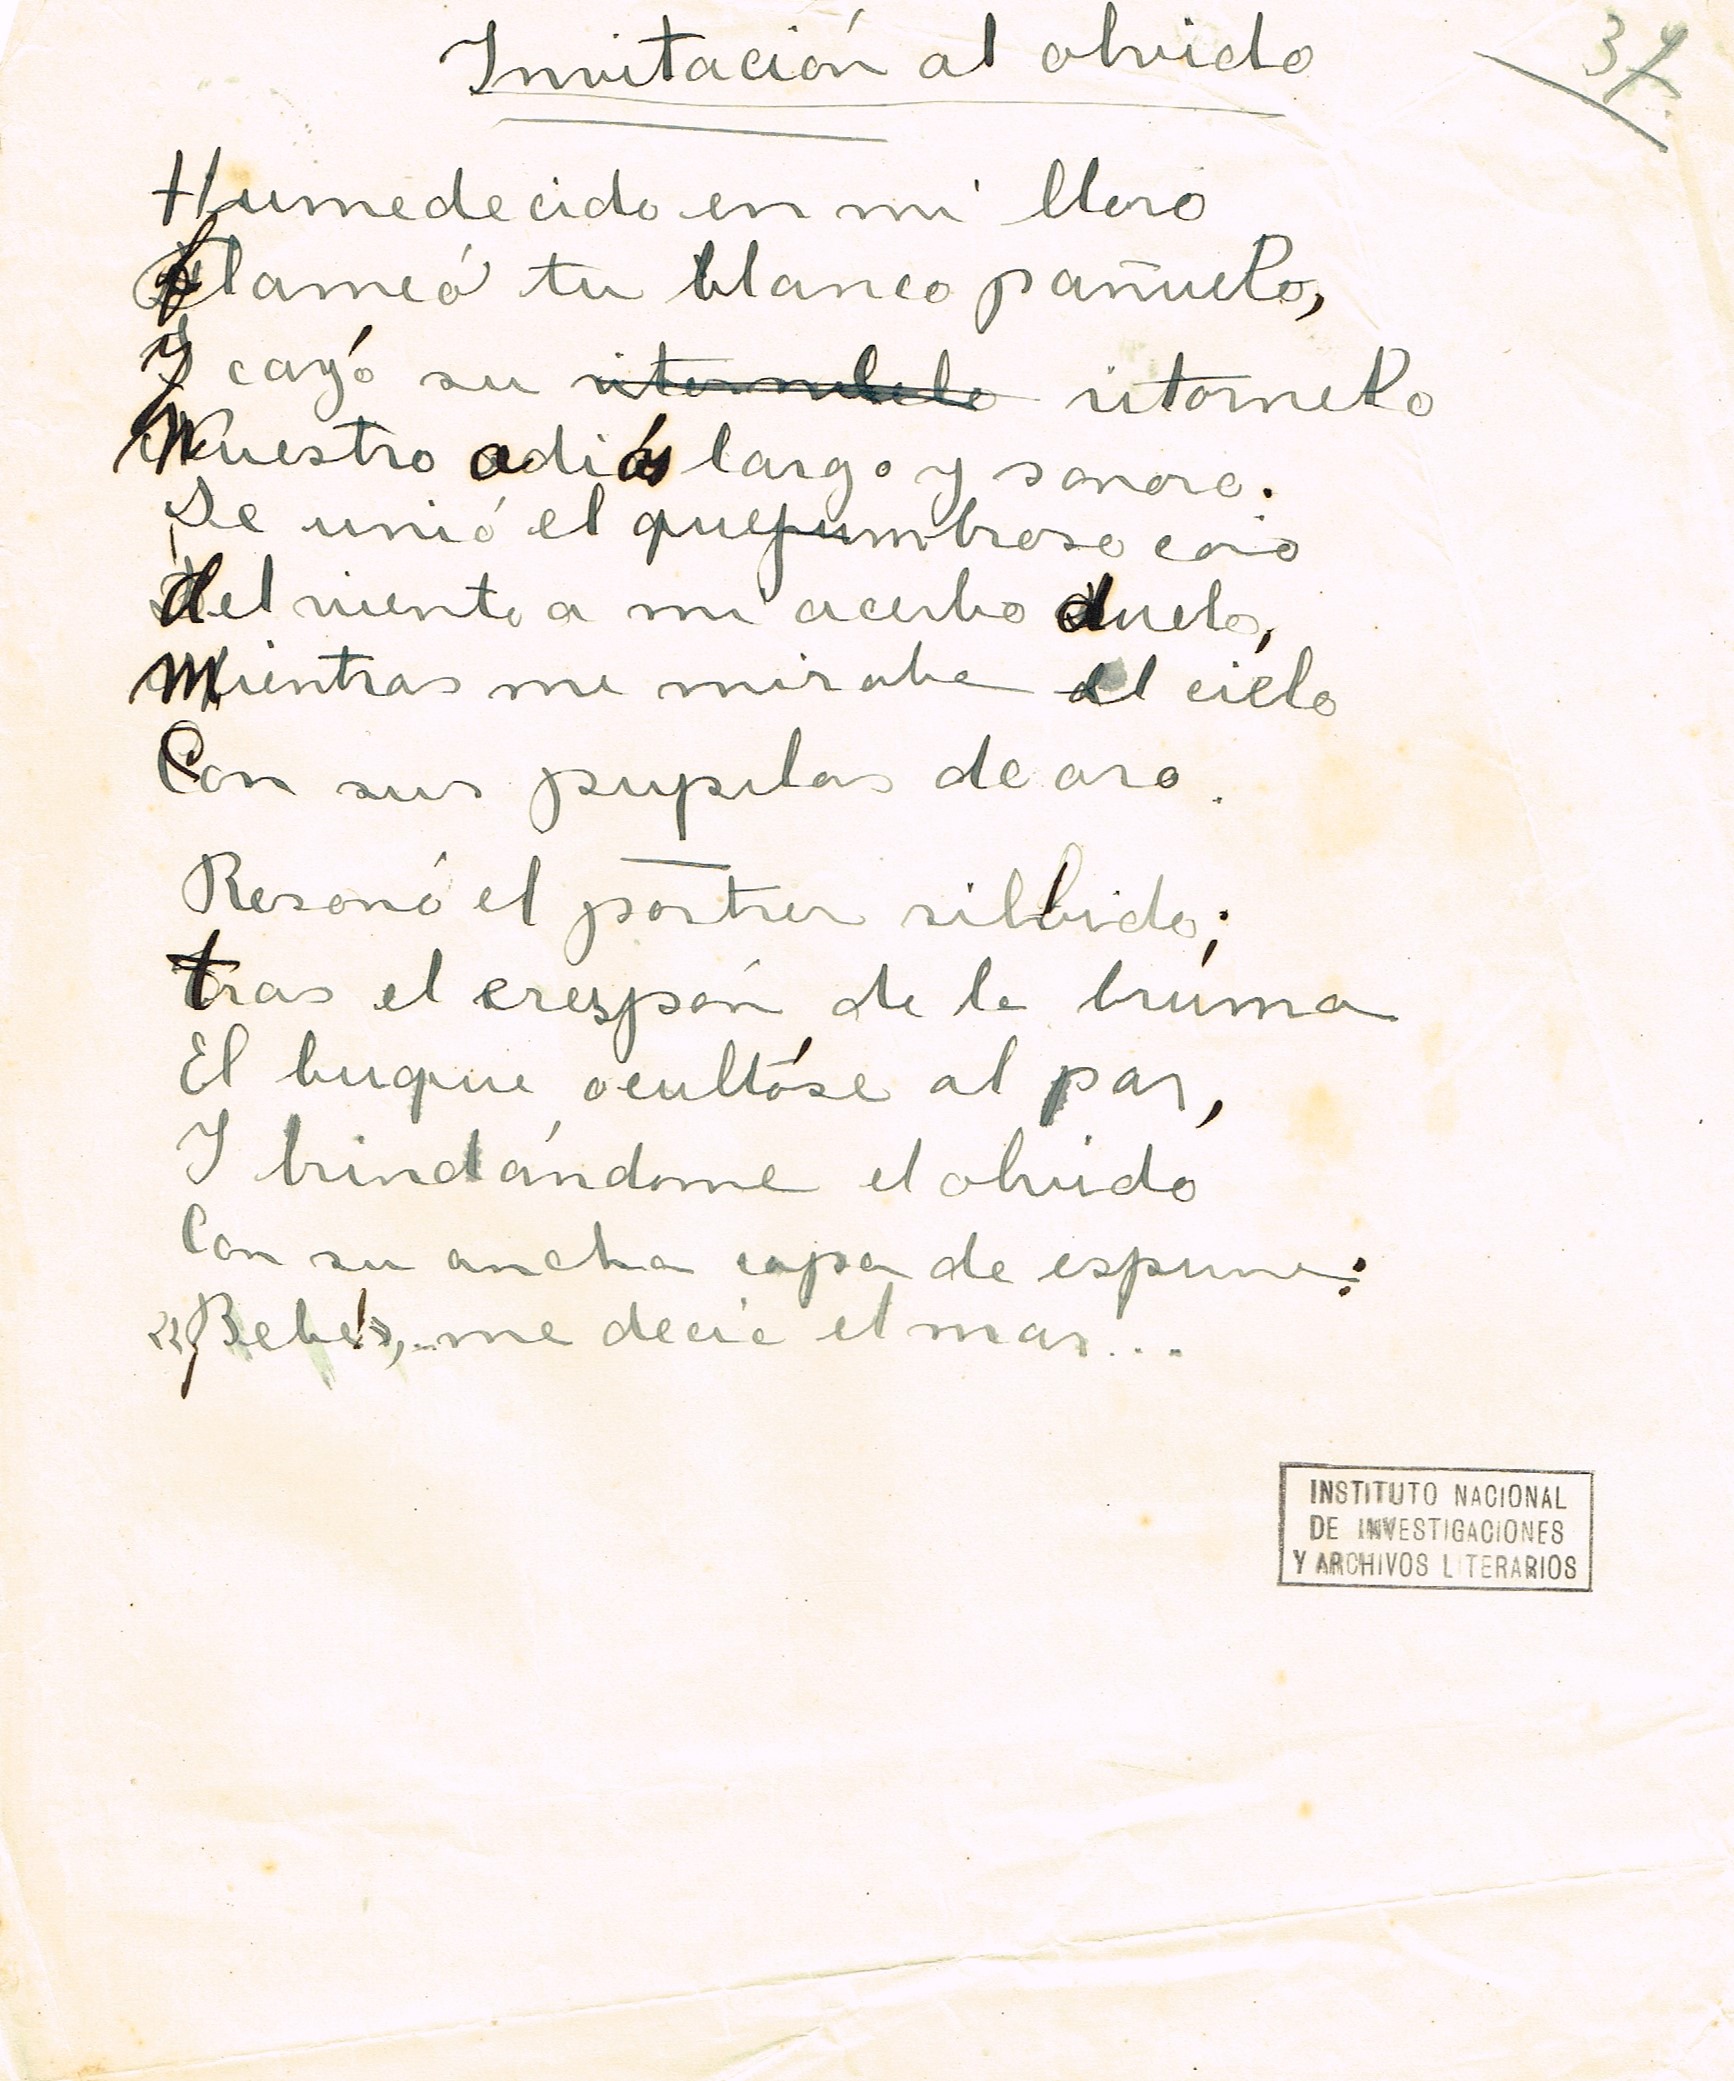 Invitación al olvido
37
Humedecido en mi lloro
flameó tu blanco pañuelo,
y cayó su ritornelo ritornelo
Nuestro adiós largo y sonoro.
Se unió el quejumbroso coro
del viento a mi acerbo duelo,
mientras me miraba el cielo
Con sus pupilas de oro.
Resonó el postrer silbido;
tras el crespón de la bruma
El buque ocultóse al par,
Y brindándome el olvido
Con su ancha copa de espuma:
«Bebe!», me decía el mar...
INSTITUTO NACIONAL
DE INVESTIGACIONES
Y ARCHIVOS LITERARIOS